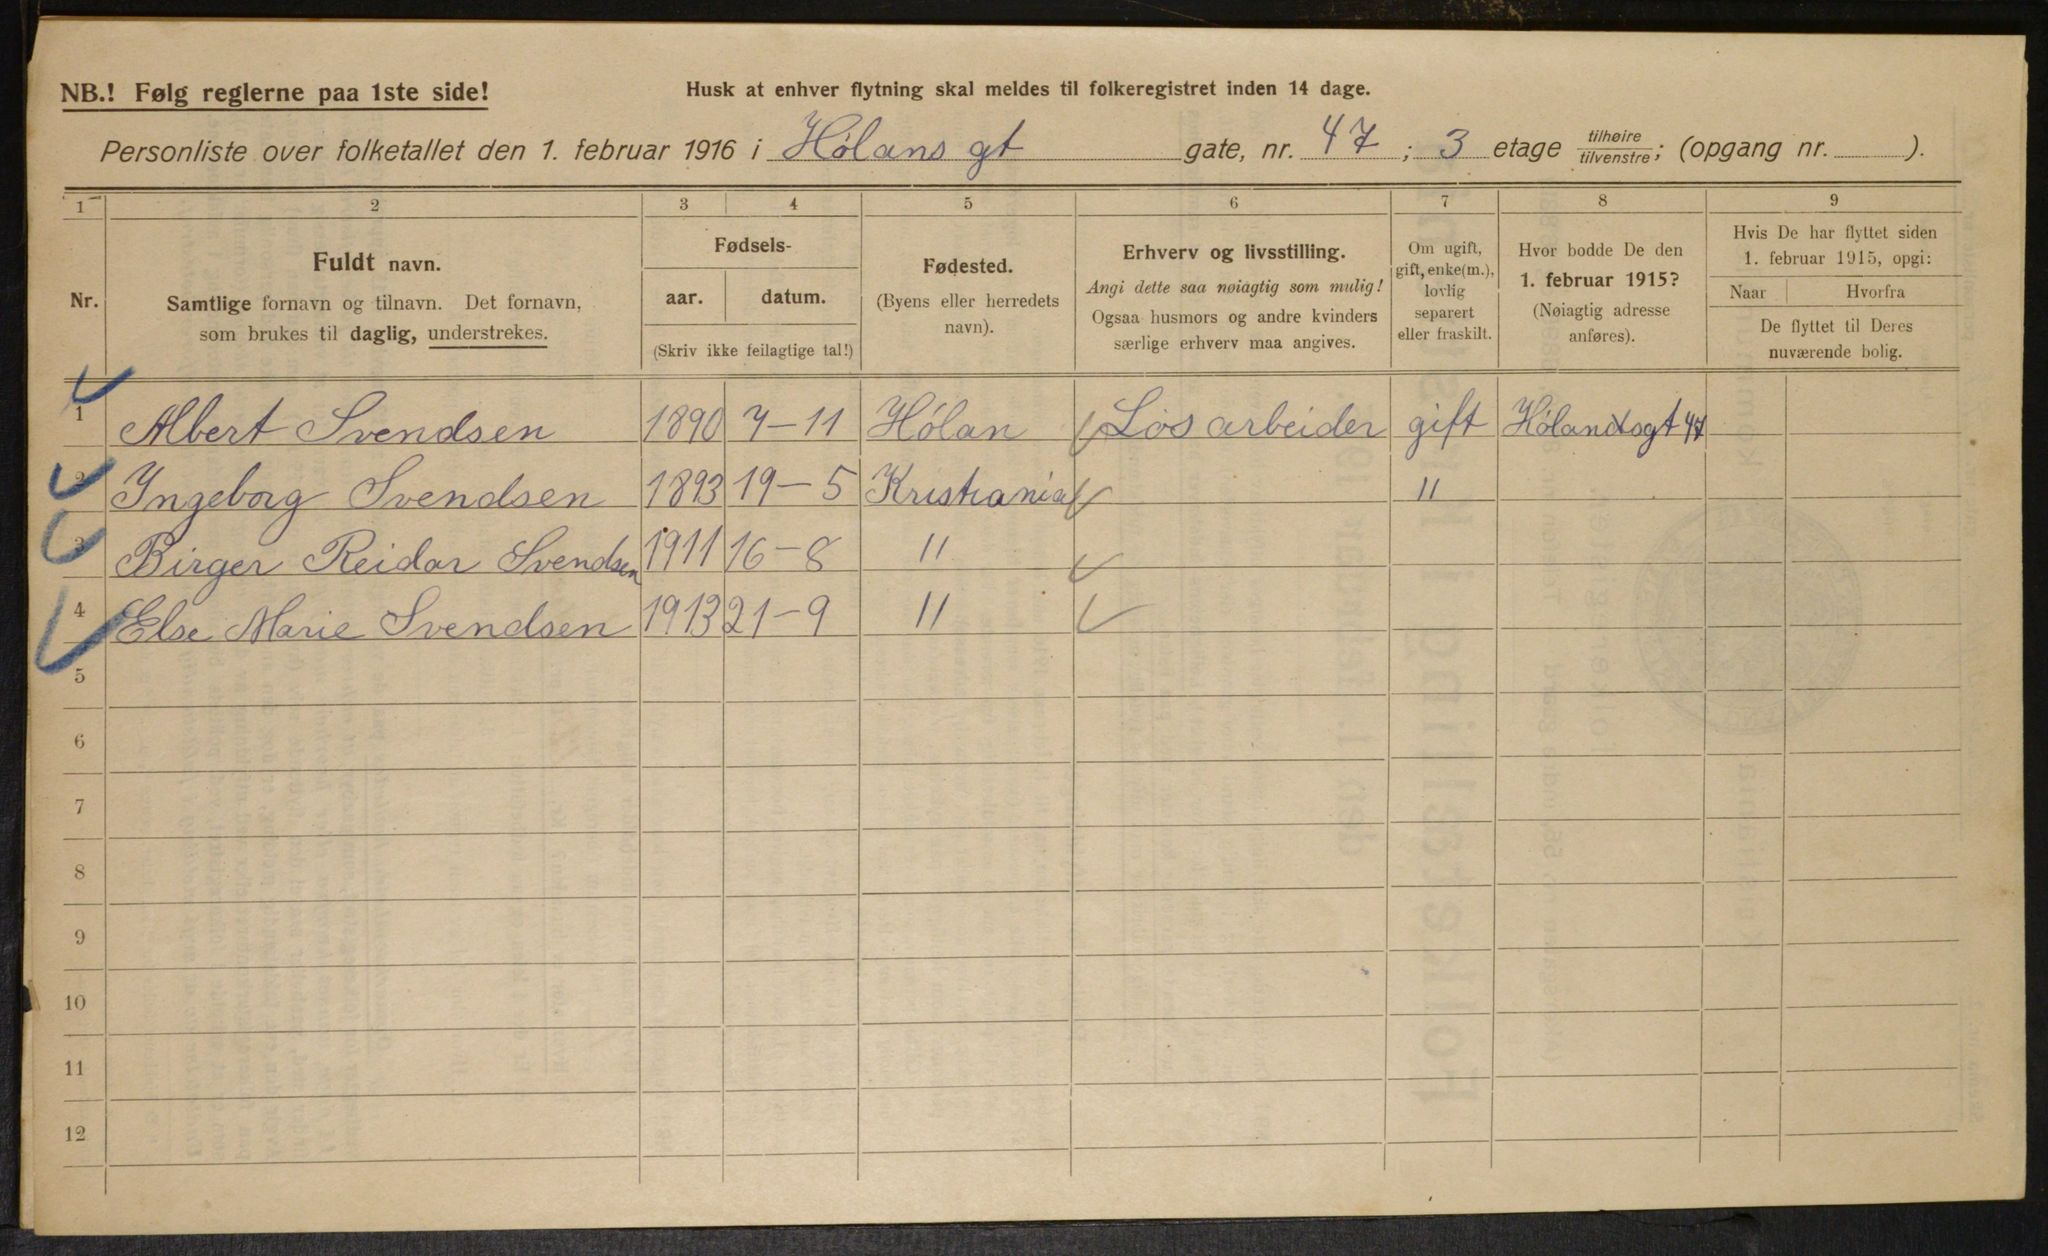 NB.! Følg reglerne paa 1ste side!
Husk at enhver flytning skal meldes til folkeregistret inden 14 dage.
Personliste over folketallet den 1. februar 1916 i Hólans gt gate, nr. 47; 3 etage tilhøire/tilvenstre; (opgang nr. ).
1 2 3 4 5 6 7 8 9
Nr.
Fuldt navn.
Samtlige fornavn og tilnavn. Det fornavn,
som brukes til daglig, understrekes.
Fødsels-
aar. datum.
(Skriv ikke feilagtige tal!)
Fødested.
(Byens eller herredets
navn).
Erhverv og livsstilling.
Angi dette saa nøiagtig som mulig!
Ogsaa husmors og andre kvinders
særlige erhverv maa angives.
Om ugift,
gift, enke(m.),
lovlig
separert
eller fraskilt.
Hvor bodde De den
1. februar 1915?
(Nøiagtig adresse
anføres).
Hvis De har flyttet siden
1. februar 1915, opgi:
Naar Hvorfra
De flyttet til Deres
nuværende bolig.
1 Albert Svendsen 1890 7-11 Hólan Lös arbeider gift Hólandsgt 47
2 Ingeborg Svendsen 1893 19-5 Kristiania "
3 Birger Reidar Svendsen 1911 16-8 "
4 Else Marie Svendsen 1913 21-9 "
5
6
7
8
9
10
11
12